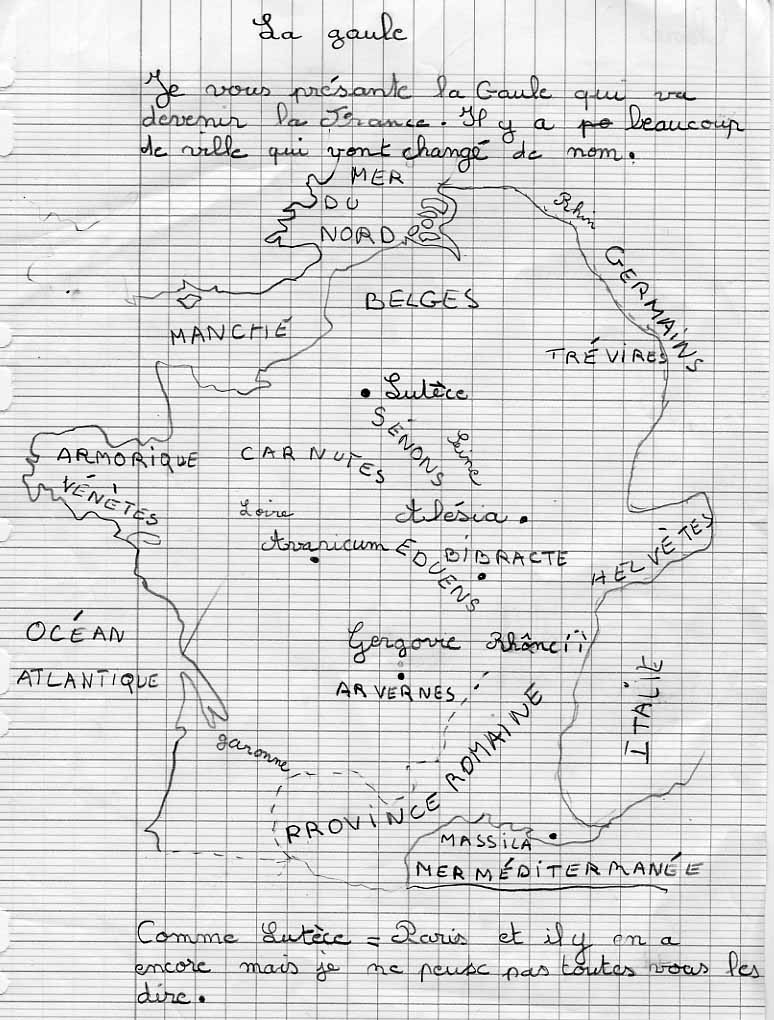 La gaule
Je vous présante la Gaule qui va
devenir la France. Il y a beaucoup
de ville qui vont changé de nom.
MER
DU
NORD
Rhin
GERMAINS
BELGES
MANCHE
TRÉVIRES
Lutèce
SÉNONS
Seine
ARMORIQUE
CARNUTES
VÉNÈTES
Loire
Alésia
Avaricum
EDUENS
BIBRACTE
HELVÈTES
OCÉAN
ATLANTIQUE
Gergovie
Rhône
ARVERNES
ITALIE
garonne
PROVINCE ROMAINE
MASSILA
MER MÉDITERMANÉE
Comme Lutèce = Paris et il y en a
encore mais je ne peusc pas toutes vous les
dire.